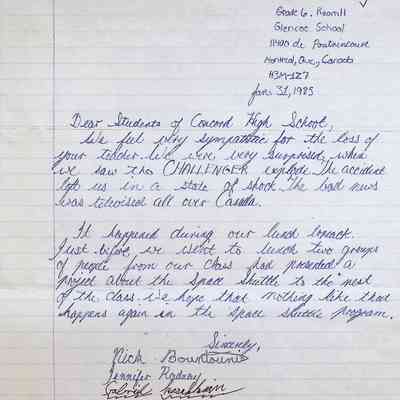 Grade 6, Room 11
Glencoe School
11400 de Poutrincourt
Montreal, Que., Canada
H3M-1Z7
Jan. 31, 1985
Dear Students of Concord High School,
We feel very sympathetic for the loss of
your teacher. We were very surprised, when
we saw the CHALLENGER explode. The accident
left us in a state of shock. The bad news
was televised all over Canada.
It happened during our lunch break.
Just before we went to lunch two groups
of people from our class had presented a
project about the space shuttle to the rest
of the class. We hope that nothing like that
happens again in the space shuttle program.
Sincerely,
Nick Bountouni
Jennifer